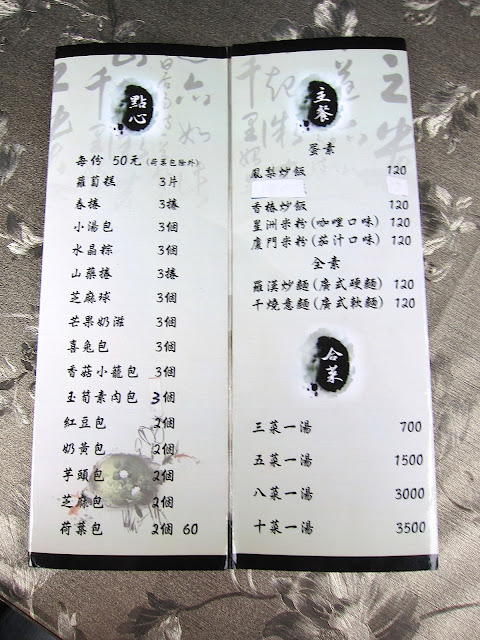 點心
每份 50元(荷葉包除外)
蘿蔔糕 3片
春捲 3捲
小湯包 3個
水晶粽 3個
山藥捲 3捲
芝麻球 3個
芒果奶滋 3個
喜兔包 3個
香菇小籠包 3個
玉筍素肉包 3個
紅豆包 2個
奶黃包 2個
芋頭包 2個
芝麻包 2個
荷葉包 2個 60
主餐
蛋素
鳳梨炒飯 120
香椿炒飯 120
星洲米粉(咖哩口味) 120
廈門米粉(茄汁口味) 120
全素
羅漢炒麵(廣式硬麵) 120
干燒意麵(廣式軟麵) 120
合菜
三菜一湯 700
五菜一湯 1500
八菜一湯 3000
十菜一湯 3500